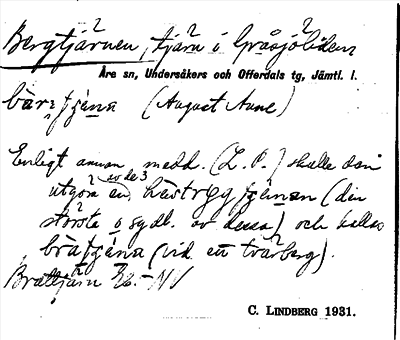 Bergtjärnen, tjärn i Gråsjöliden
Åre sn, Undersåkers och Offerdals tg, Jämtl. l.
(August Aune)
Enligt annan medd. (L. P.) skulle den
utgöra en av de 3 (den
största o sydl. av dessa) och kallas
(vid ett tvärberg).
Brattjärn NV
C. LINDBERG 1931.